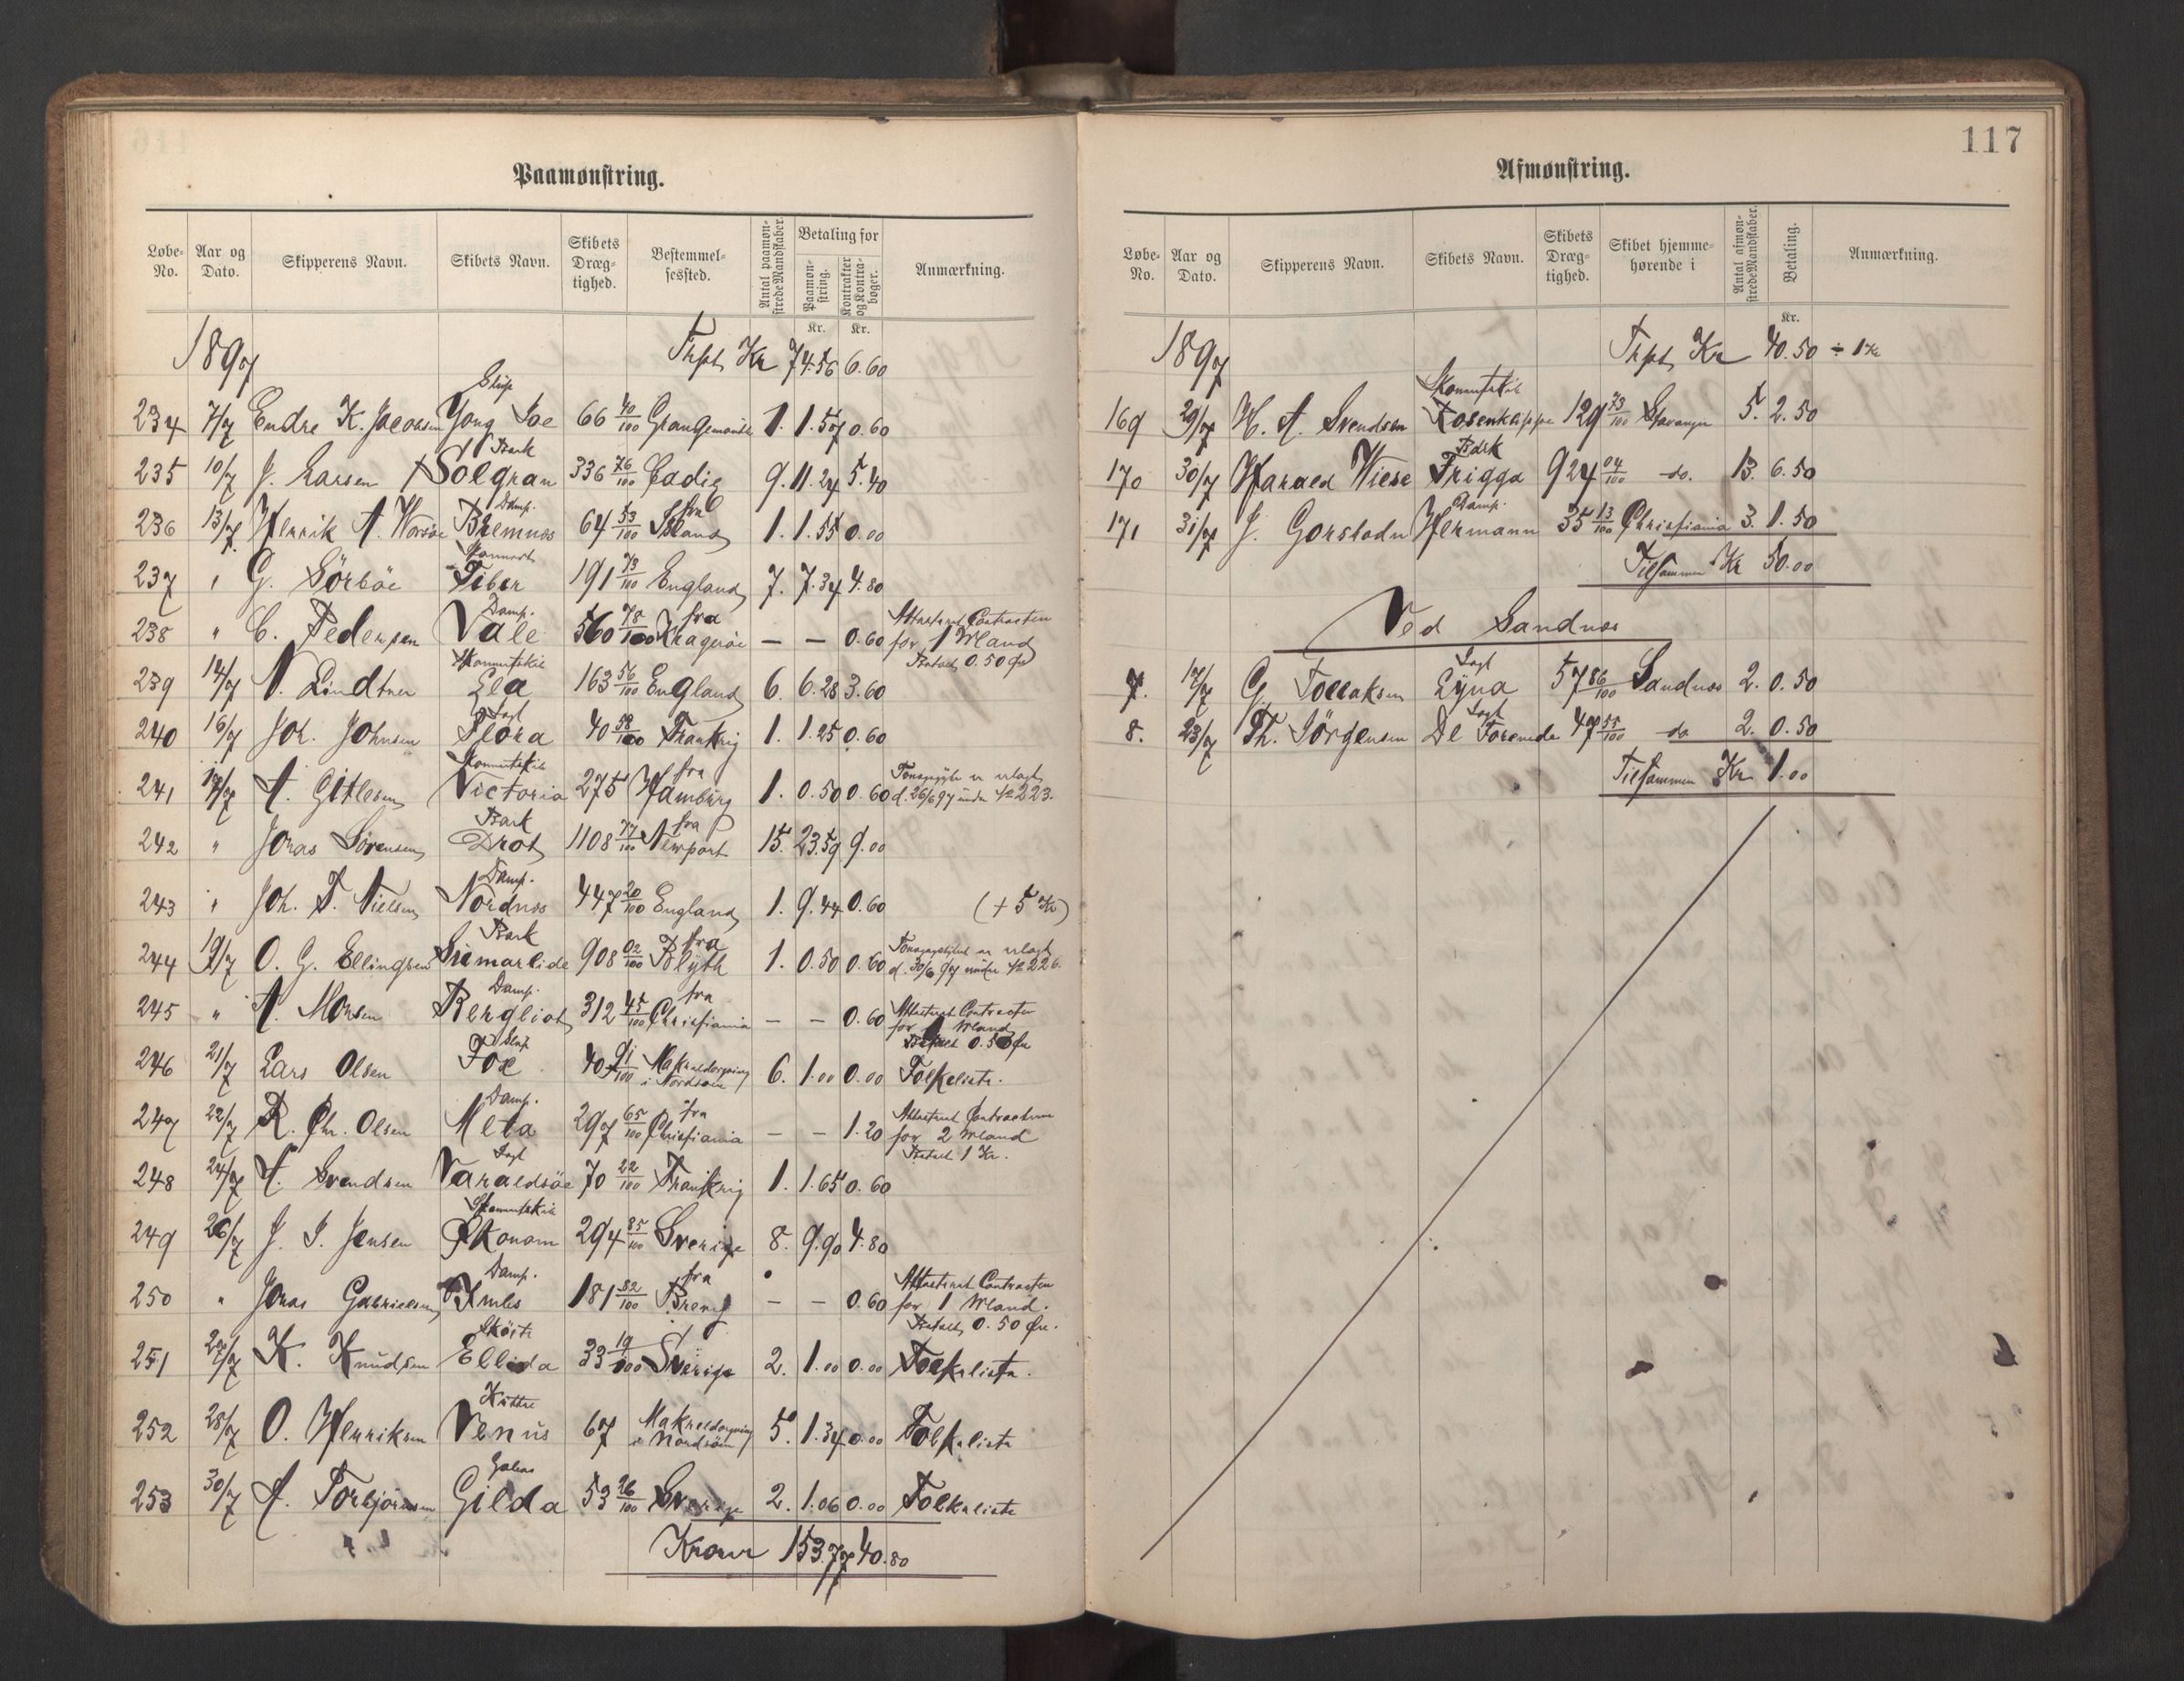 Paamønstring.
Løbe-No. Aar og Dato. Skipperens Navn. Skibets Navn. Skibets Dræg-tighed. Bestemmel-sessted. Antal paamøn-strede Mandskaber. Betaling for Paamøn-string. Kontrakter og Kontra-bøger. Anmærkning.
Kr. Kr.
1897 Trpt Kr 74.56 6.60
234 7/7 Endre K. Jacobsen Slup Yong Joe 66 40/100 Grangemouth 1. 1.57 0.60
235 10/7 J. Larsen Bark Solgran 336 76/100 Cadiz 9. 11.24 5.40
236 13/7 Henrik A. Worsöe Damp. Bremnæs 64 53/100 fra Island 1. 1.55 0.00
237 " G. Sörböe Tiber 191 73/100 England 7. 7.34 4.80
238 " C. Pedersen Damp. Vale 560 78/100 fra Kragerøe — — 0.60 Attesteret Contracten for 1 Mand Betalt 0.50 Øre
239 14/7 N. Lindtner Skonnertskib Ela 163 56/100 England 6. 6.28 3.60
240 16/7 Joh. Johnsen Jagt Flora 40 58/100 Frankrig 1. 1.25 0.60
241 17/7 A. Gitlesen Skonnertskib Victoria 275 fra Hamburg 1. 0.50 0.60 er erlagt d. 26/6 97 under No 223.
242 " Jonas Sørensen Bark Drot 1108 77/100 fra Newport 15. 23.59 9.00
243 " Joh. T. Nielsen Damp. Nordnæs 447 20/100 England 1. 9.44 0.60 (+ 5 Kr)
244 19/7 O. G. Ellingsen Bark Siemarlide 908 02/100 fra Blyth 1. 0.50 0.60 er erlagt d. 30/6 97 under No 226.
245 " A. Monsen Damp. Bergliot 312 45/100 fra Christiania — — 0.60 Attesteret Contracten for 1 Mand Betalt 0.50 Øre
246 21/7 Lars Olsen Slup Fox 40 91/100 Makreldorgning i Nordsøen 6. 1.00 0.00 Folkeliste.
247 22/7 R. Chr. Olsen Damp. Meta 297 65/100 fra Christiania — — 1.20 Attesteret Contracterne for 2 Mand Betalt 1 Kr.
248 24/7 A. Svendsen Jagt Varaldsöe 70 22/100 Frankrig 1. 1.65 0.60
249 26/7 J. I. Jensen Skonnertskib Økonom 294 85/100 Sverige 8. 9.90 4.80
250 " Jonas Gabrielsen Damp. 181 82/100 fra Brevig — — 0.60 Attesteret Contracten for 1 Mand. Betalt 0.50 Øre.
251 27/7 K. Knudsen Sköite Ellida 33 19/100 Sverige 2. 1.00 0.00 Folkeliste.
252 28/7 O. Henriksen Kutter Venus 67 Makreldorgning i Nordsöen 5. 1.34 0.00 Folkeliste
253 30/7 A. Torbjörnsen Galeas Gilda 53 26/100 Sverige 2. 1.06 0.00 Folkeliste
Kroner 153.77 40.80
117
Afmønstring.
Løbe-No. Aar og Dato. Skipperens Navn. Skibets Navn. Skibets Dræg-tighed. Skibet hjemme-hørende i Antal afmøn-strede Mandskaber. Betaling. Anmærkning.
Kr.
1897 Trpt Kr 40.50 ÷ 1 Kr
169 29/7 H. A. Svendsen Skonnertskib Rosenklippe 129 73/100 Stavanger 5. 2.50
170 30/7 Harald Wiese Bark Frigga 924 04/100 do. 13. 6.50
171 31/7 J. Gorstadn Damp. Hermann 35 13/100 Christiania 3. 1.50
Tilsammen Kr 50.00
Ved Sandnæs
7. 17/7 G. Tollaksen Jagt Eyna 57 86/100 Sandnæs 2. 0.50
8. 23/7 Th. Jörgensen Jagt De Forenede 47 55/100 do 2. 0.50
Tilsammen Kr. 1.00